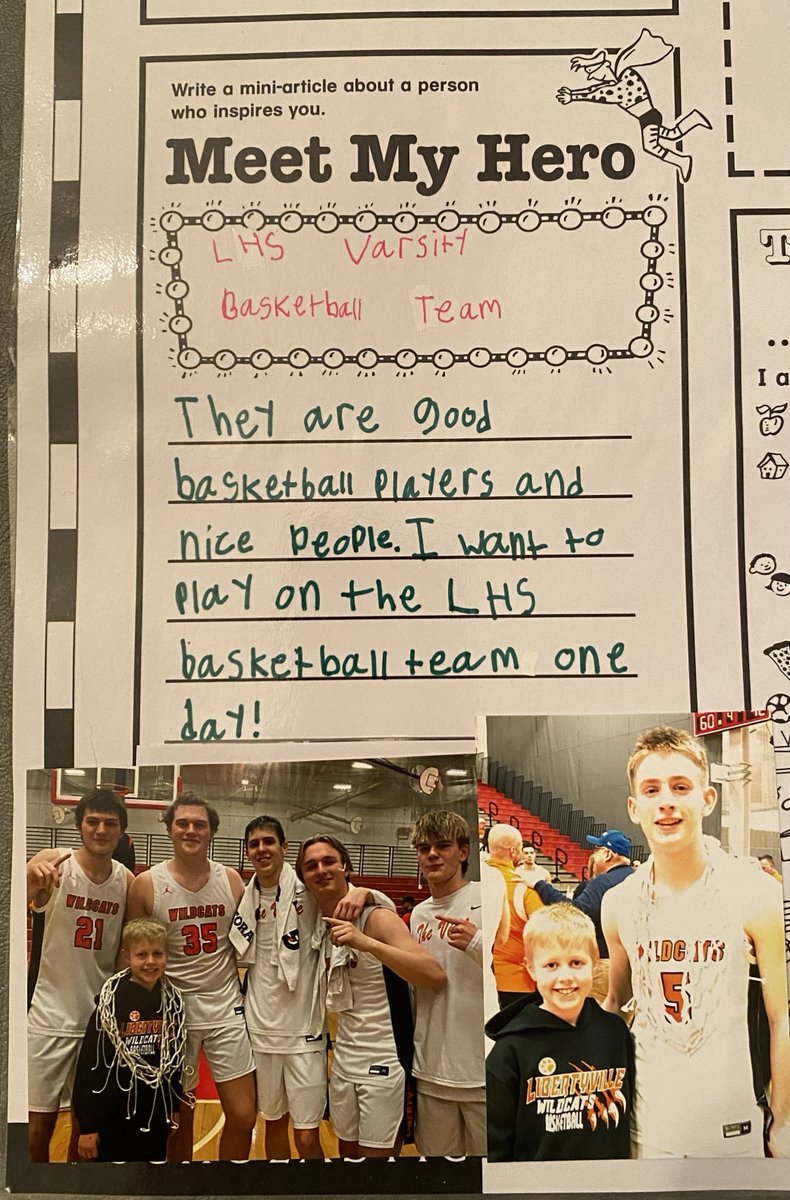 Write a mini-article about a person
who inspires you.
Meet My Hero
LHS Varsity
Basketball Team
They are good
basketball players and
nice people. I want to
play on the LHS
basketball team one
day!
I a
60.4
WILDCATS
21
WILDCATS
35
The
The
LIBERTYVILLE
WILDCATS
BASKETBALL
WILDCATS
5
LIBERTYVILLE
WILDCATS
BASKETBALL